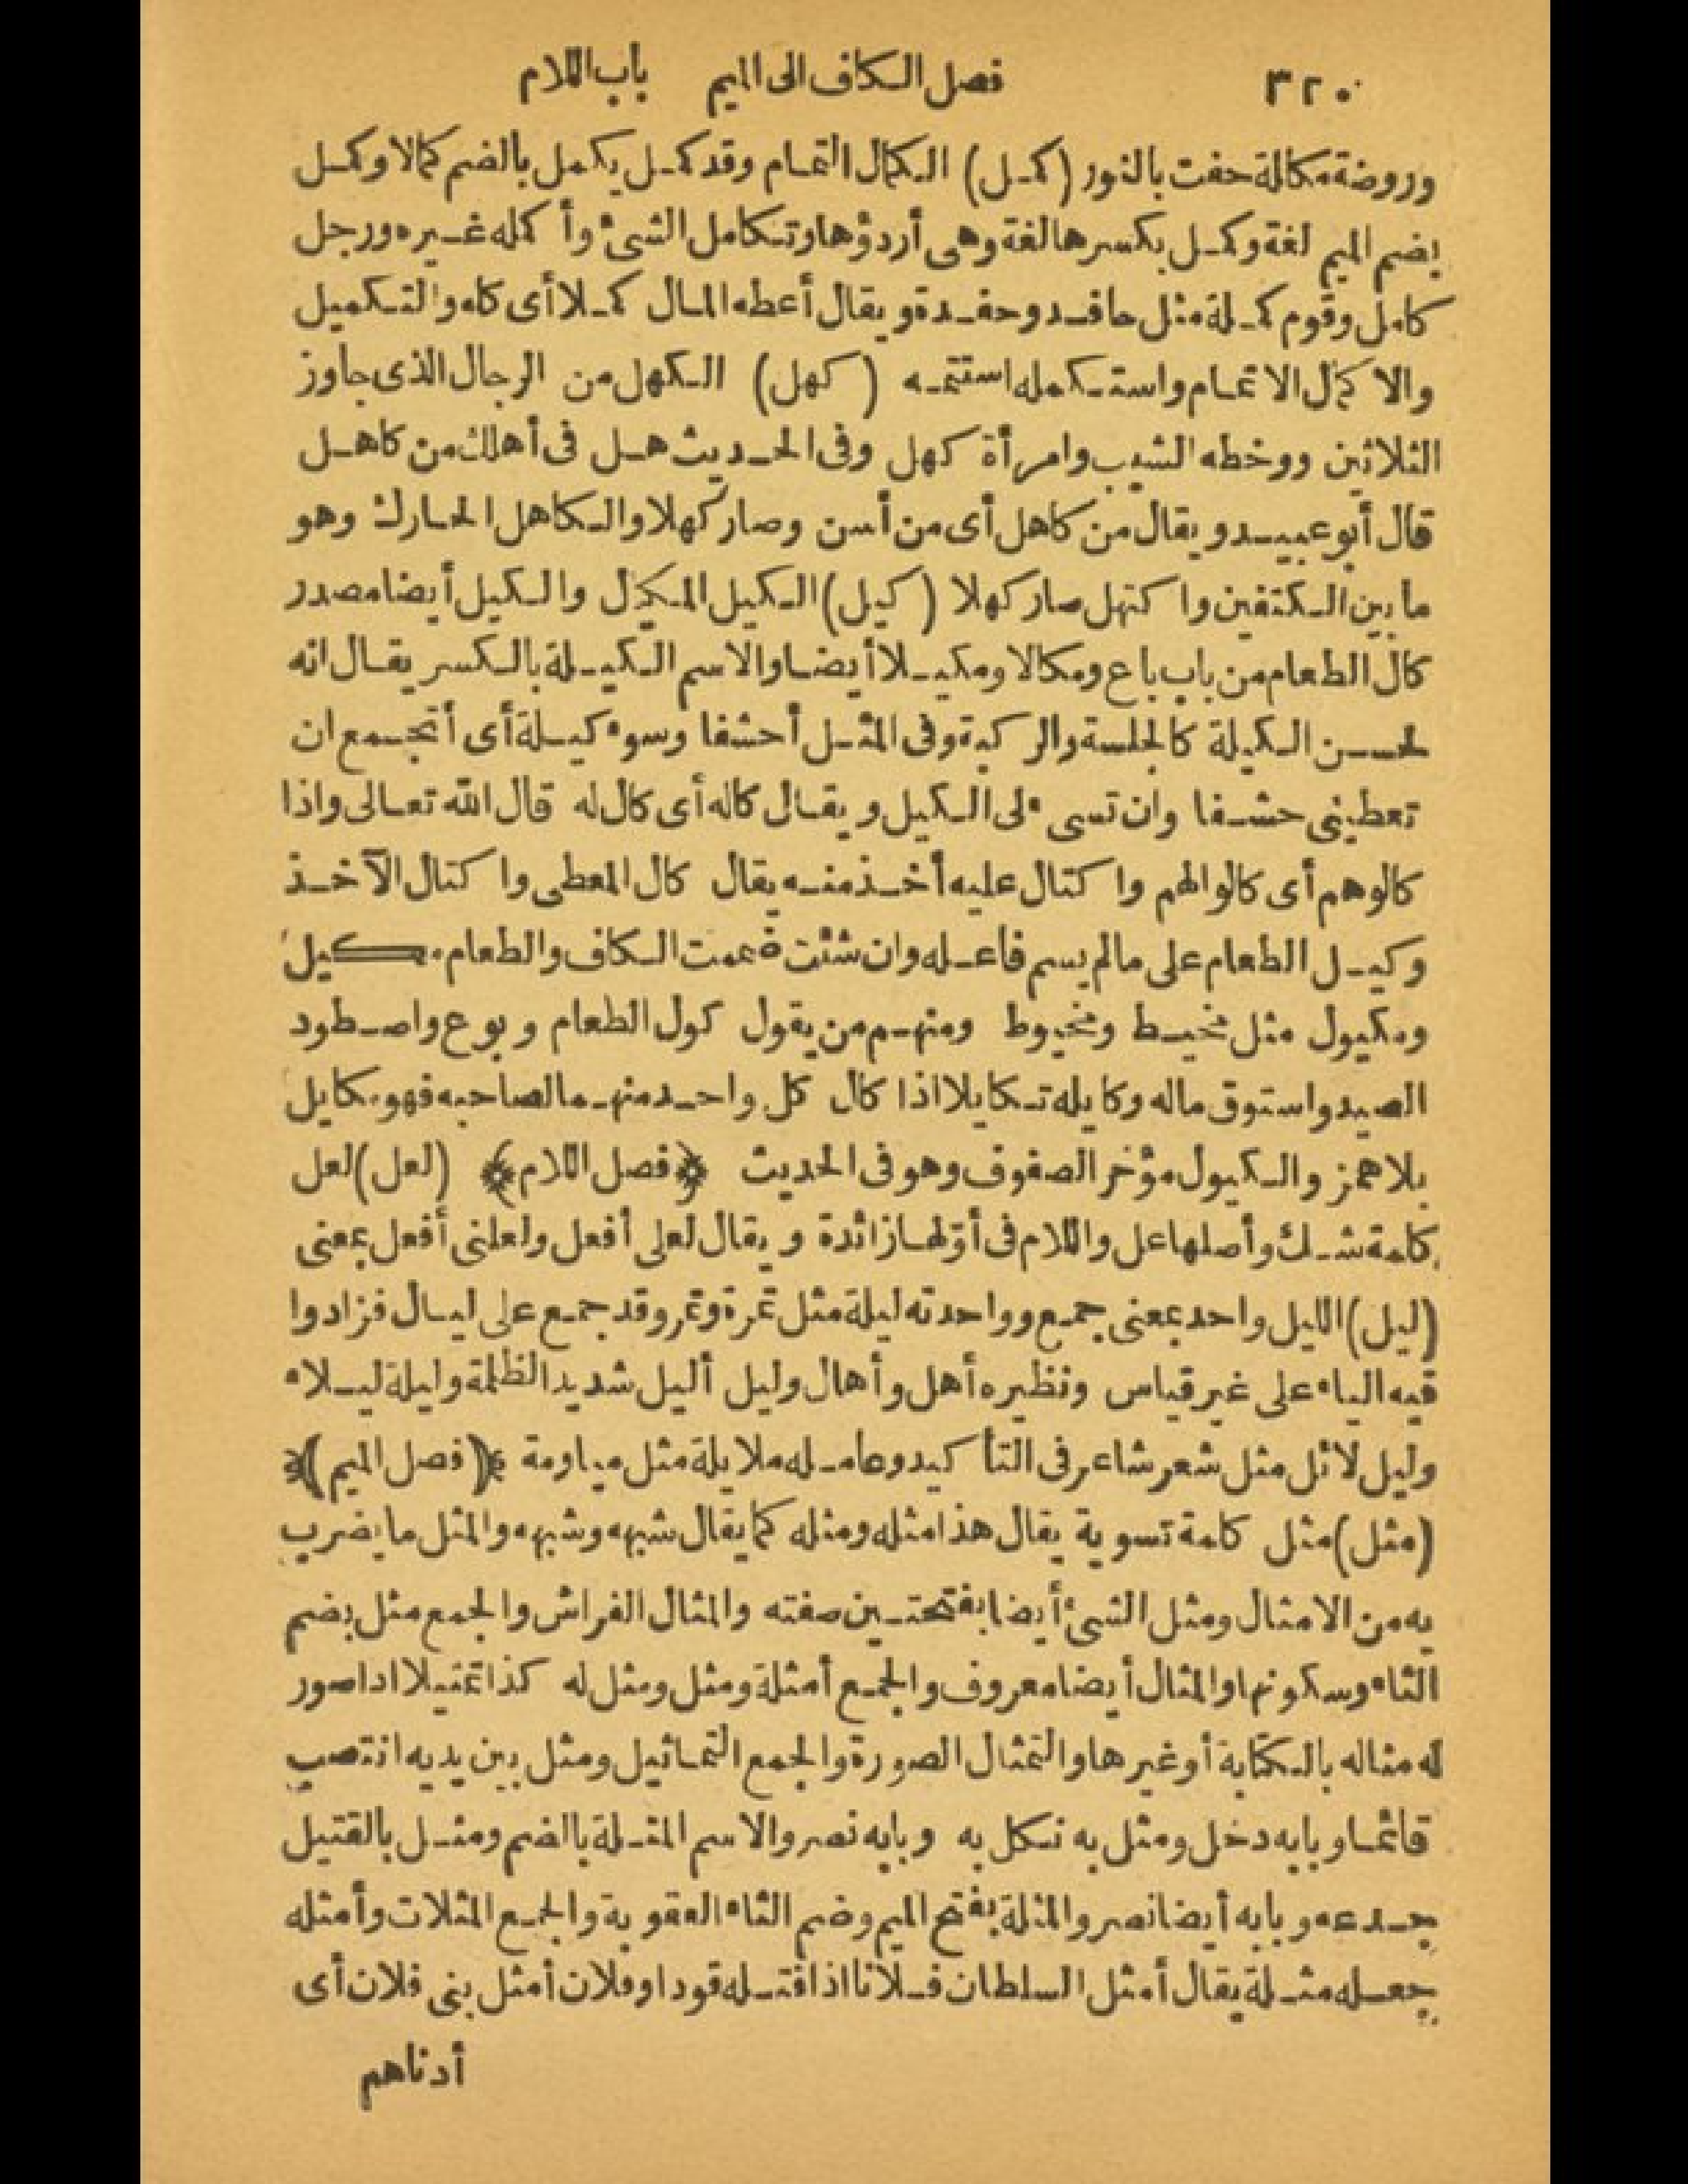 ٣٢٠ فصل الكاف الى الميم باب اللام
وروضة مكالة حفت بالنور (كمل) الكمال التمام وقد كمل يكمل بالضم كمالا وكمل
بضم الميم لغة وكمل بكسرها لغة وهى أردؤها وتكامل الشئ وأكمله غيره ورجل
كامل وقوم كملة مثل حافد وحفدة ويقال أعطه المال كملا أى كله والتكميل
والاكمال الاتمام واستكمله استتمه (كهل) الكهل من الرجال الذى جاوز
الثلاثين ووخطه الشيب وامرأة كهل وفى الحديث هل فى أهلك من كاهل
قال أبو عبيد ويقال من كاهل أى من أسن وصار كهلا والكاهل الحارك وهو
ما بين الكتفين واكتهل صار كهلا (كيل) الكيل المكيال والكيل أيضا مصدر
كال الطعام من باب باع ومكالا ومكيلا أيضا والاسم الكيلة بالكسر يقال انه
لحسن الكيلة كالجلسة والركبة وفى المثل أحشفا وسوء كيلة أى أتجمع ان
تعطينى حشفا وان تسىء لى الكيل ويقال كاله أى كال له قال الله تعالى واذا
كالوهم أى كالوا لهم واكتال عليه أخذ منه يقال كال المعطى واكتال الآخذ
وكيل الطعام على ما لم يسم فاعله وان شئت ضممت الكاف والطعام مكيل
ومكيول مثل مخيط ومخيوط ومنهم من يقول كول الطعام وبوع واصطود
الصيد واستوق ماله وكايله تكايلا اذا كال كل واحد منهما لصاحبه فهو مكايل
بلا همز والكيول مؤخر الصفوف وهو فى الحديث ﴿فصل اللام﴾ (لعل) لعل
كلمة شك وأصلها عل واللام فى أولها زائدة ويقال لعلى أفعل ولعلنى أفعل بمعنى
(ليل) الليل واحد بمعنى جمع وواحدته ليلة مثل تمرة وتمر وقد جمع على ليال فزادوا
فيه الياء على غير قياس ونظيره أهل وأهال وليل أليل شديد الظلمة وليلة ليلاء
وليل لائل مثل شعر شاعر فى التأكيد وعامله ملايلة مثل مياومة ﴿فصل الميم﴾
(مثل) مثل كلمة تسوية يقال هذا مثله ومثله كما يقال شبهه وشبهه والمثل ما يضرب
به من الامثال ومثل الشئ أيضا بفتحتين صفته والمثال الفراش والجمع مثل بضم
الثاء وسكونها والمثال أيضا معروف والجمع أمثلة ومثل ومثل له كذا تمثيلا اذا صور
له مثاله بالكتابة أو غيرها والتمثال الصورة والجمع التماثيل ومثل بين يديه انتصب
قائما وبابه دخل ومثل به نكل به وبابه نصر والاسم المثلة بالضم ومثل بالقتيل
جدعه وبابه أيضا نصر والمثلة بفتح الميم وضم الثاء العقوبة والجمع المثلات وأمثله
جعله مثلة يقال أمثل السلطان فلانا اذا قتله قودا وفلان أمثل بنى فلان أى
أدناهم